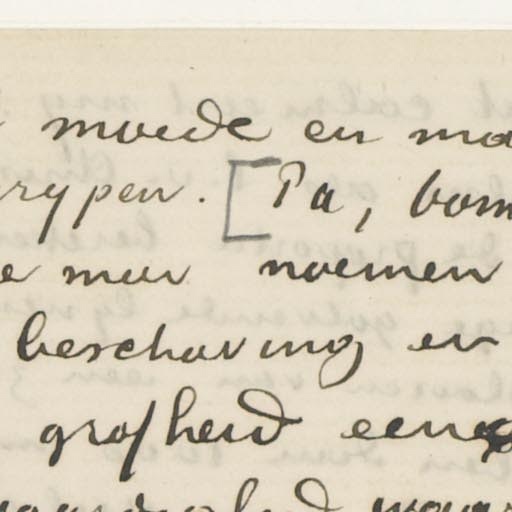 moede en
rypen. [Pa, bom
e mar noemen
beschaving en
grofheid eene